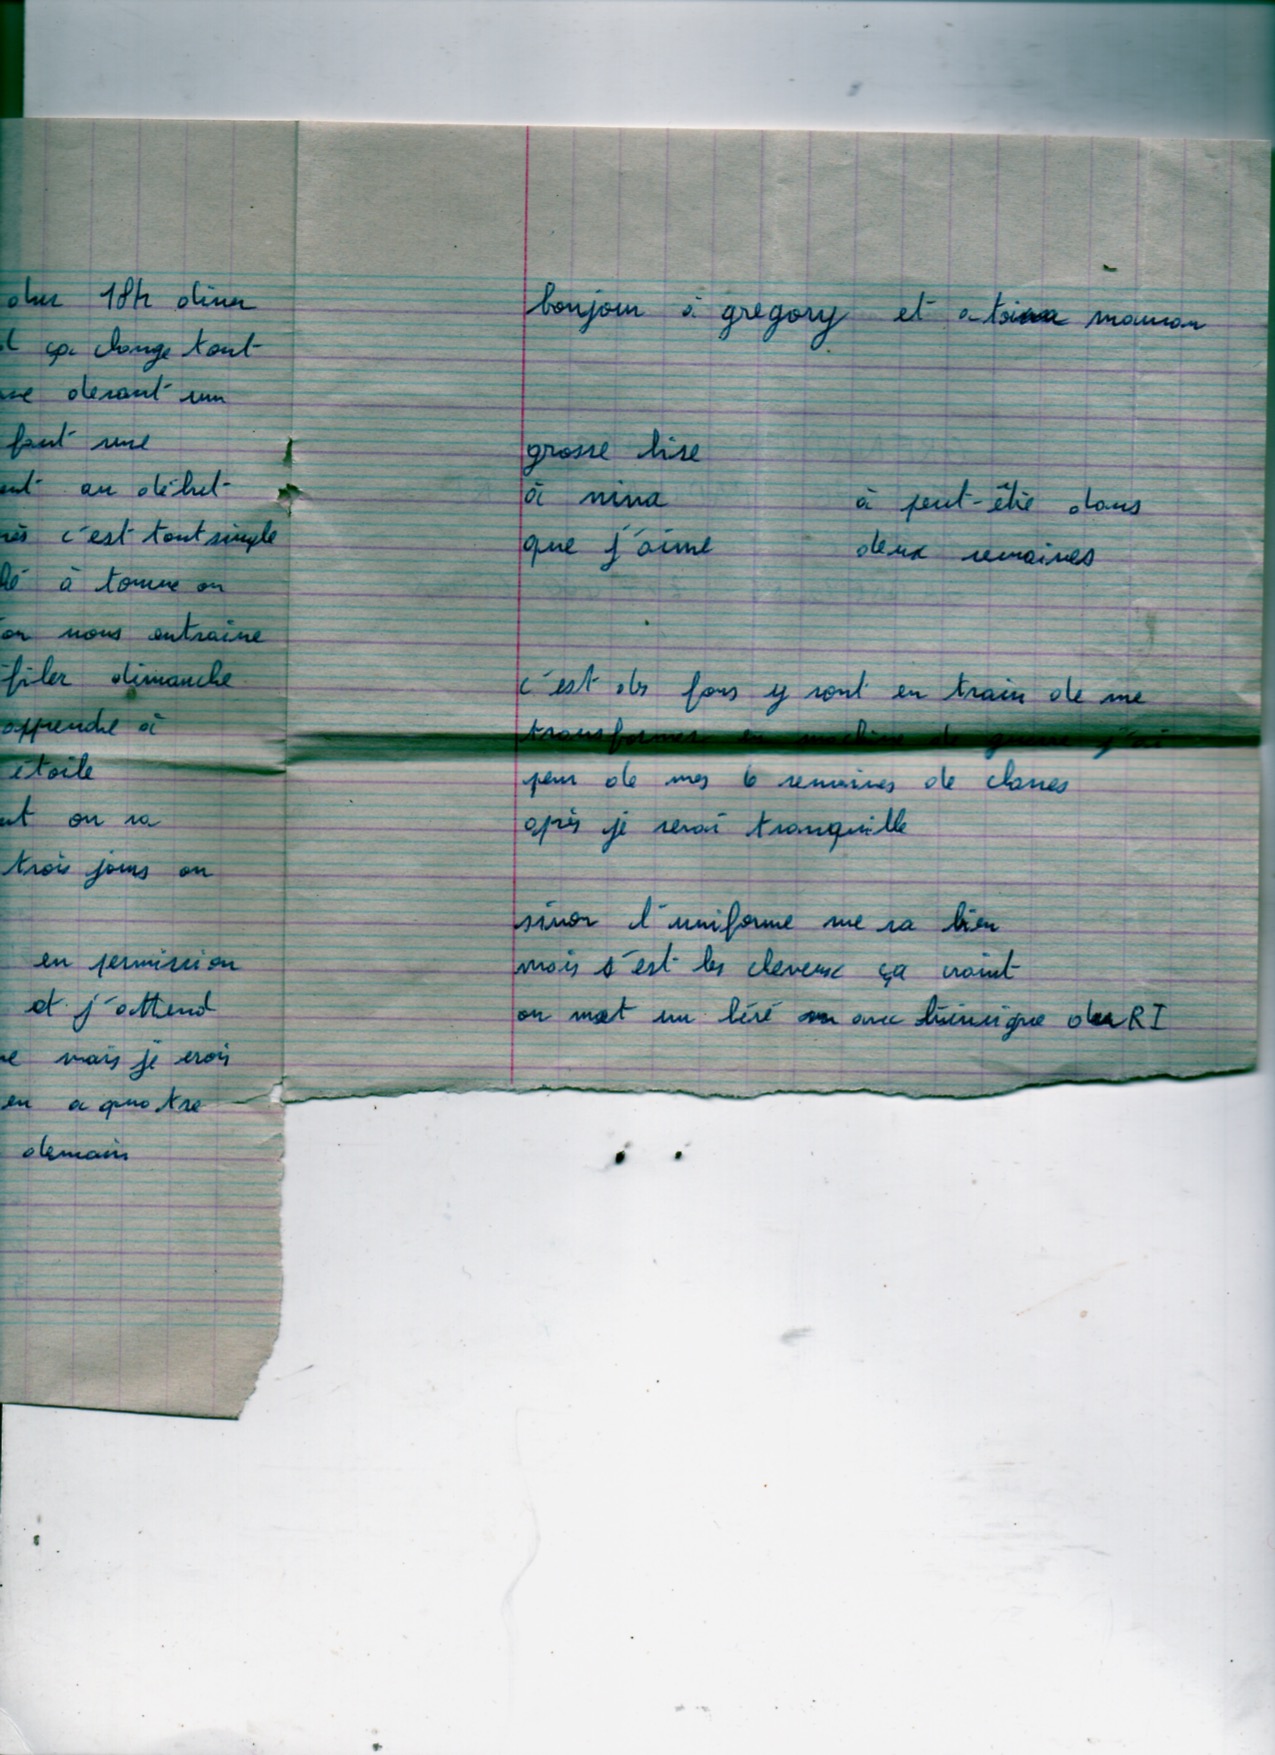 18h diner
ça change tout
devant un
faut une
au début
c'est tout simple
à tourne on
nous entraine
dimanche
apprendre à
étoile
on va
trois jours on
en permission
et j'attend
mais je crois
en a quatre
demain
bonjour à gregory et a toi maman
grosse bise
à nina
que j'aime
à peut-être dans
deux semaines
c'est des fous y sont en train de me
transformer en machine de guerre j'ai
peur de mes 6 semaines de classes
après je serai tranquille
sinon l'uniforme me va bien
mais s'est les cheveux ça craint
on met un béré avec du RI